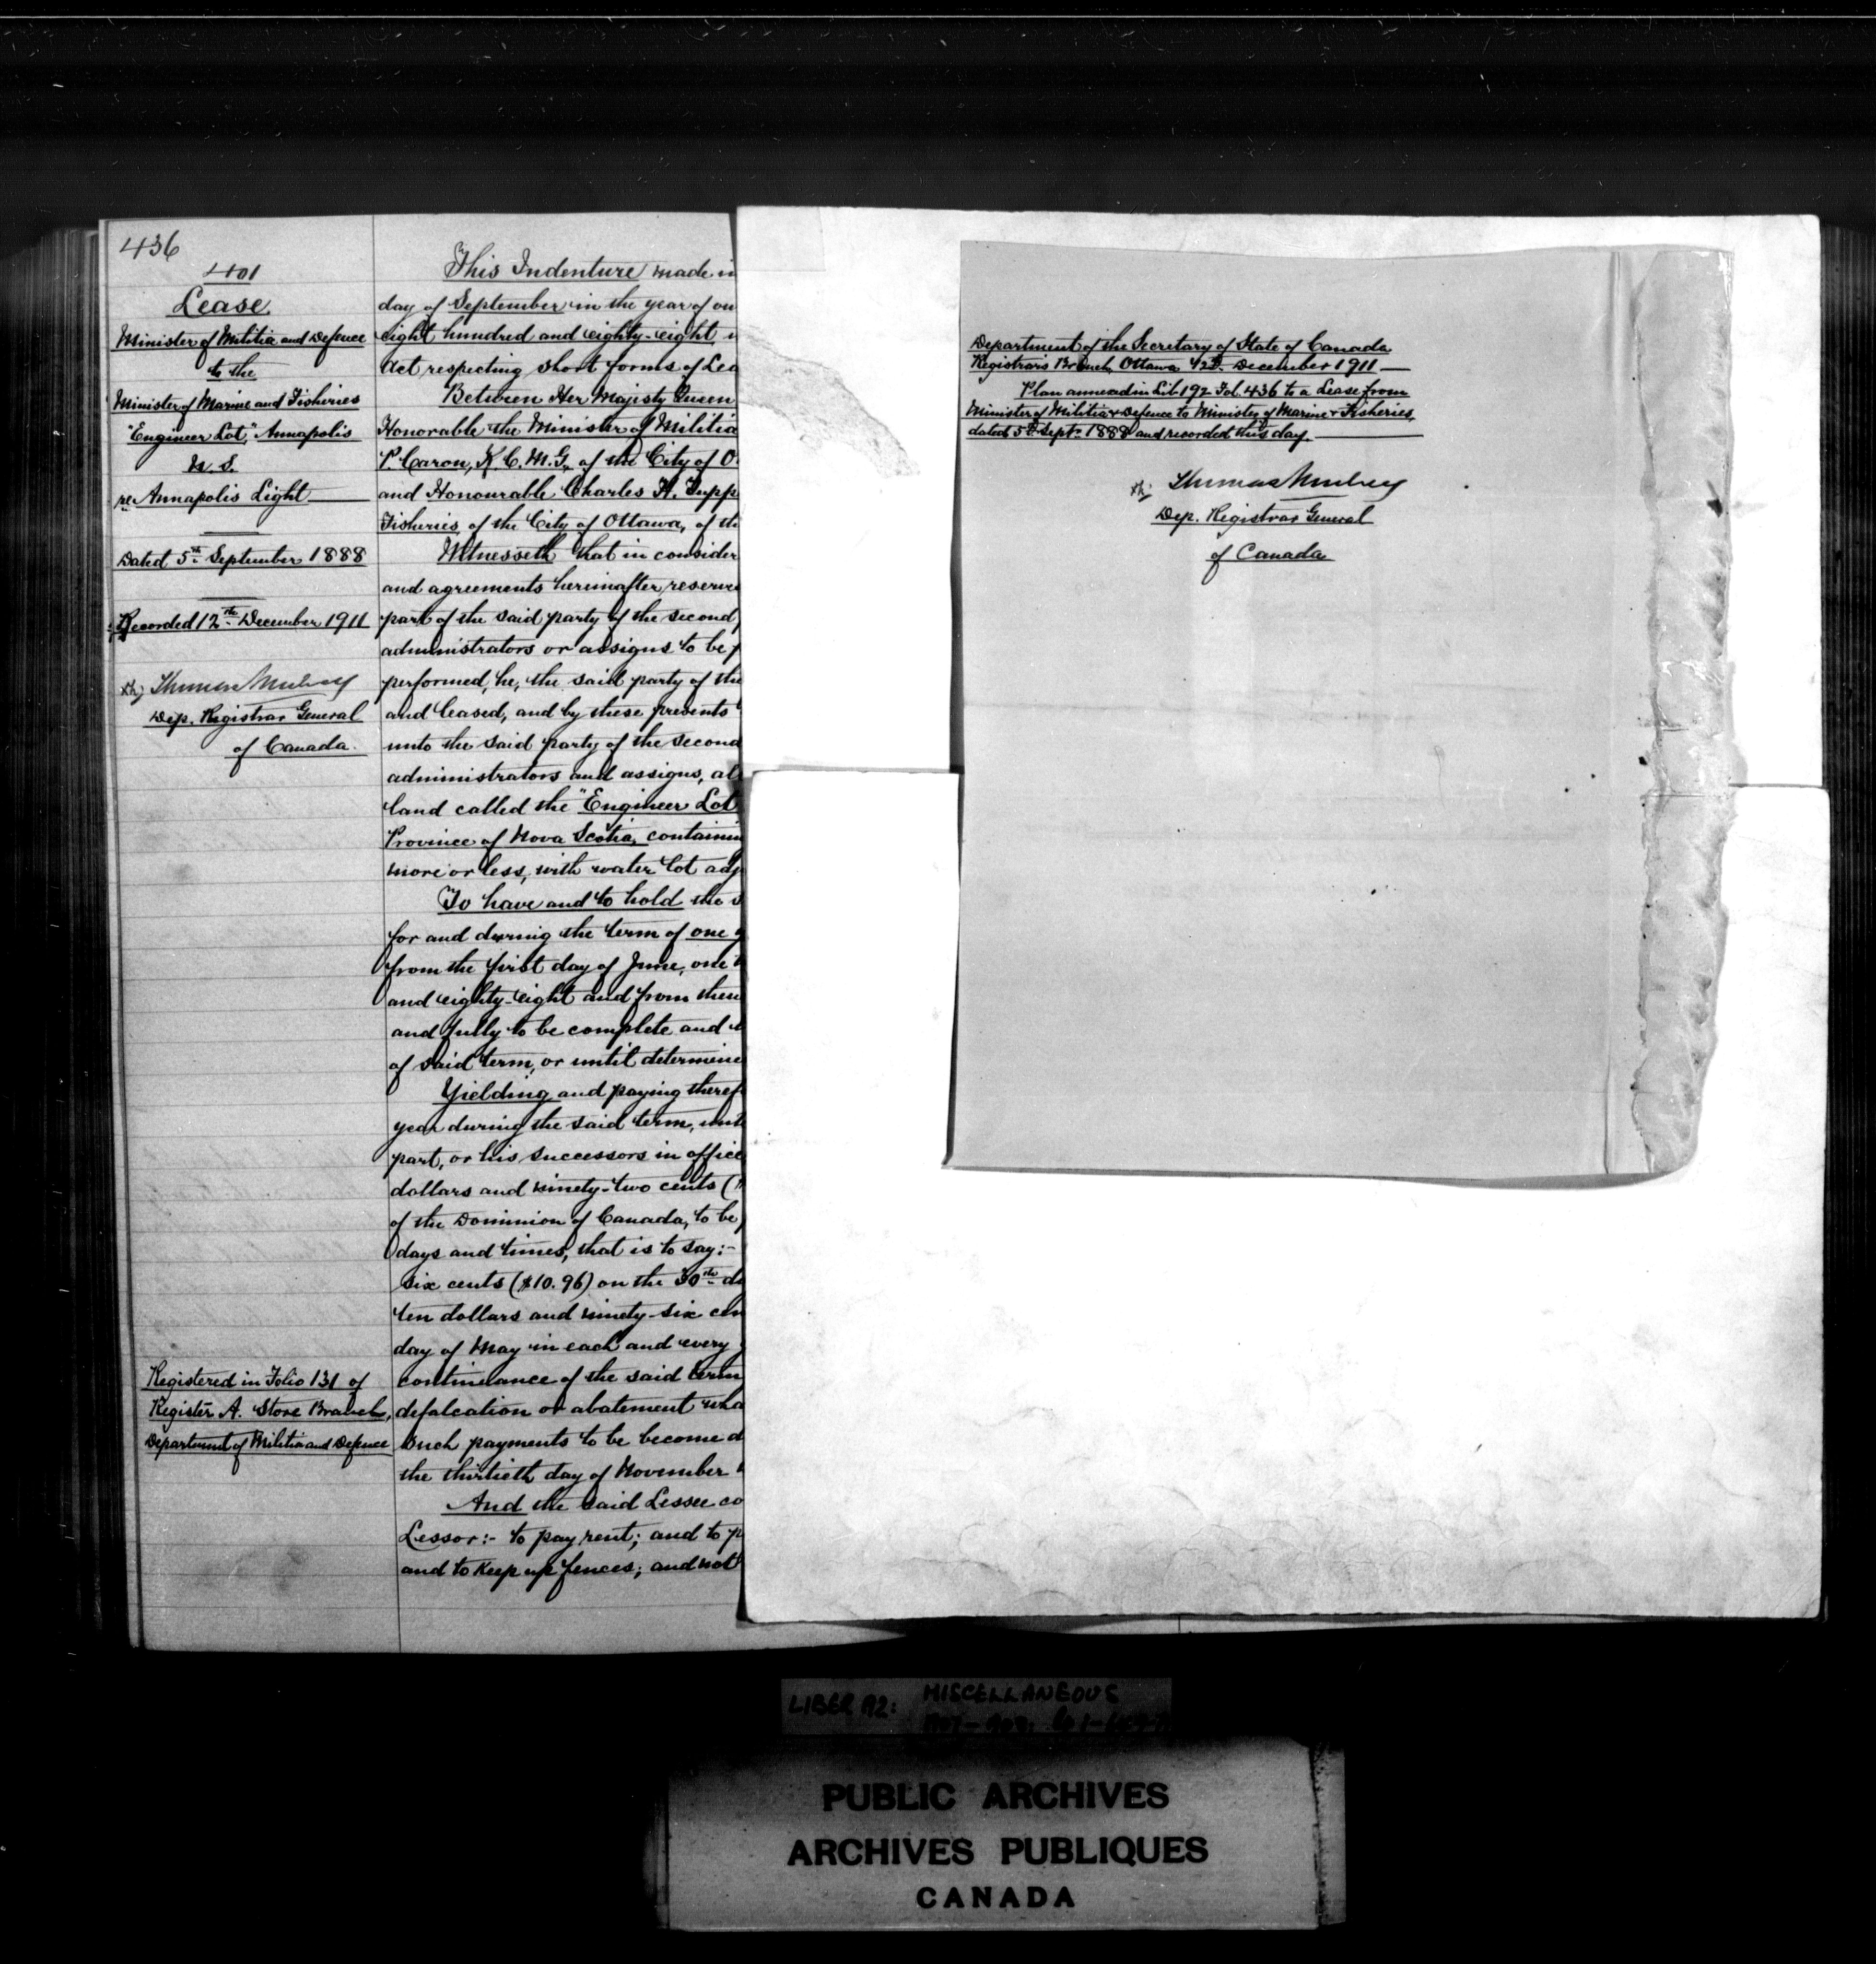 436
401
Lease
Minister of Militia and Defence
to the
Minister of Marine and Fisheries
"Engineer Lot," Annapolis
N.S.
re Annapolis Light
Dated 5th September 1888
Recorded 12th December 1911
Thomas Mulvey
Dep. Registrar General
of Canada.
Registered in Folio 131 of
Register A. Store Branch,
Department of Militia and Defence
This Indenture made in
day of September in the year of ou
eight hundred and eighty-eight
Act respecting short forms of Lea
Between Her Majesty Queen
Honorable the Minister of Militia
P. Caron, K.C.M.G., of the City of O
and Honourable Charles H. Tupp
Fisheries of the City of Ottawa, of th
Witnesseth that in consider
and agreements hereinafter reserve
part of the said party of the second
administrators or assigns to be
performed, he, the said party of the
and leased, and by these presents
unto the said party of the second
administrators and assigns, al
land called the "Engineer Lot
Province of Nova Scotia, containin
more or less, with water lot adj
To have and to hold the s
for and during the term of one y
from the first day of June, one t
and eighty-eight and from then
and fully to be complete and
of said term, or until determine
Yielding and paying theref
year during the said term, unto
part, or his successors in office
dollars and ninety-two cents (
of the Dominion of Canada, to be
days and times, that is to say:-
six cents ($10.96) on the 30th da
ten dollars and ninety-six cen
day of May in each and every y
continuance of the said term
defalcation or abatement wha
such payments to be become d
the thirtieth day of November
And the said Lessee co
Lessor:- to pay rent; and to p
and to keep up fences; and not
Department of the Secretary of State of Canada
Registrar's Branch, Ottawa 12th December 1911
Plan annexed in Lib. 192 Fol. 436 to a Lease from
Minister of Militia & Defence to Minister of Marine & Fisheries,
dated 5th Sept. 1888 and recorded this day.
Thomas Mulvey
Dep. Registrar General
of Canada
LIBER 192: MISCELLANEOUS
PUBLIC ARCHIVES
ARCHIVES PUBLIQUES
CANADA